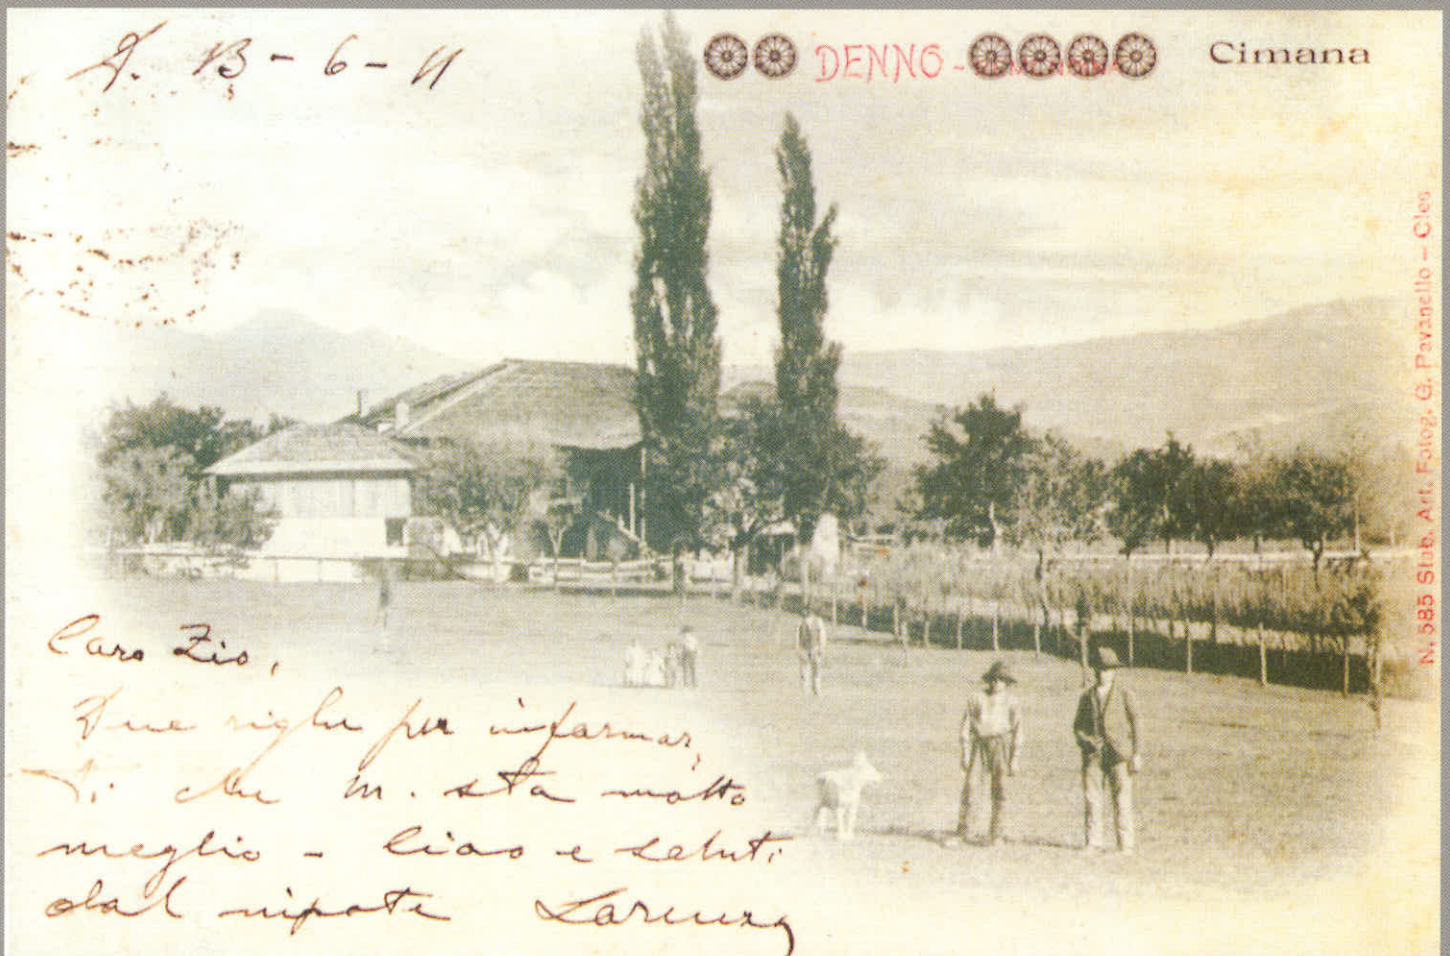 D. 13-6-11
DENNO -
Cimana
N. 585 Stab. Art. Fotog. G. Pavanello - Cles
Caro Zio,
Due righe per informar,
ti che M. sta molto
meglio - Ciao e saluti
dal nipote Lorenzo